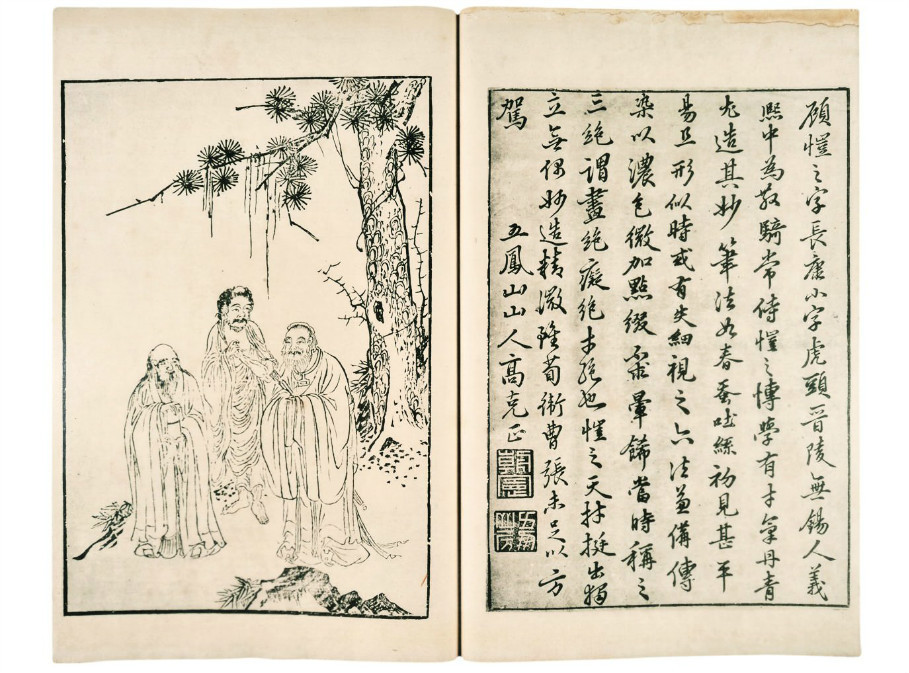 顧愷之字長康小字虎頭晉陵無錫人義
熙中為散騎常侍愷之博學有才氣丹青
尤造其妙筆法如春蚕吐絲初見甚平
易且形似時或有失細視之六法兼備傳
染以濃色微加點綴不求暈餙當時稱之
三絶謂畫絶癡絶才絶也愷之天材挺出獨
立無偶妙造精微雖荀衛曹張未足以方
駕
五鳳山山人高克正